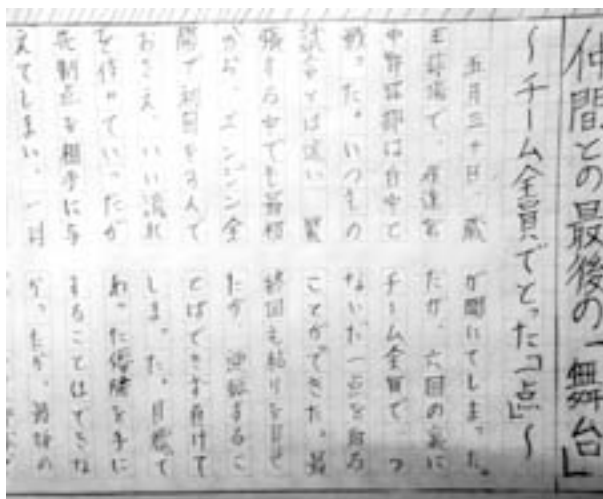 仲間との最後の「舞台」
～チーム全員でとった「点」～
五月三十日、蔵
王球場で、
中野球部は台中と
戦った。いつもの
試合とは違い、緊
張する中でも最初
から、エンジン全
開で初回を三人で
おさえ、いい流れ
を作っていったが
先制点を相手に与
えてしまい、一対
が開いてしまった。
たが、六回の裏に
チーム全員で、つ
ないだ一点を取る
ことができた。最
終回も粘りを見せ
たが、逆転するこ
とはできず負けて
しまった。目標で
あった優勝を手に
することはできな
かったが、最後の